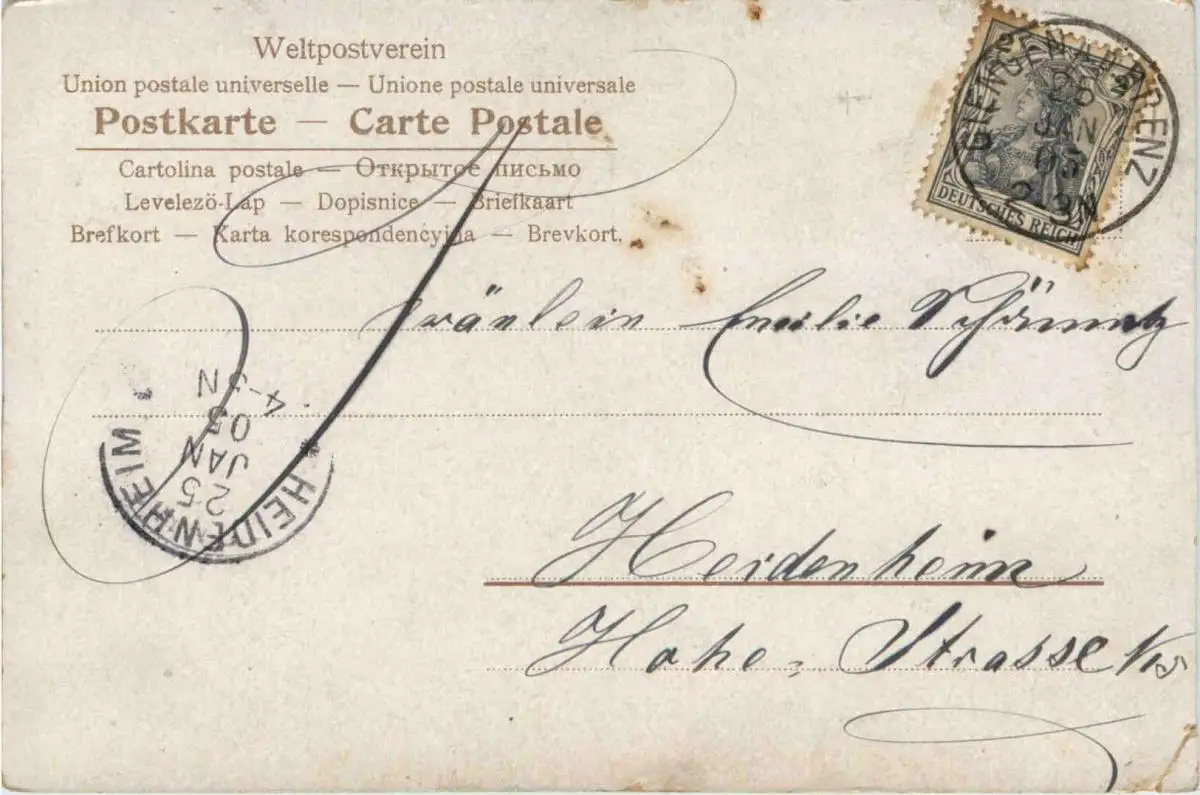 Weltpostverein
Union postale universelle — Unione postale universale
Postkarte — Carte Postale
Cartolina postale — Открытое письмо
Levelezö-Lap — Dopisnice — Briefkaart
Brefkort — Karta korespondencyjna — Brevkort.
2 2
DEUTSCHES REICH
GIENGEN A. BRENZ
25
JAN
05
2-3N
Fräulein Emilie
HEIDENHEIM
25
JAN
05
4-5N
Heidenheim
Hohe-Strasse